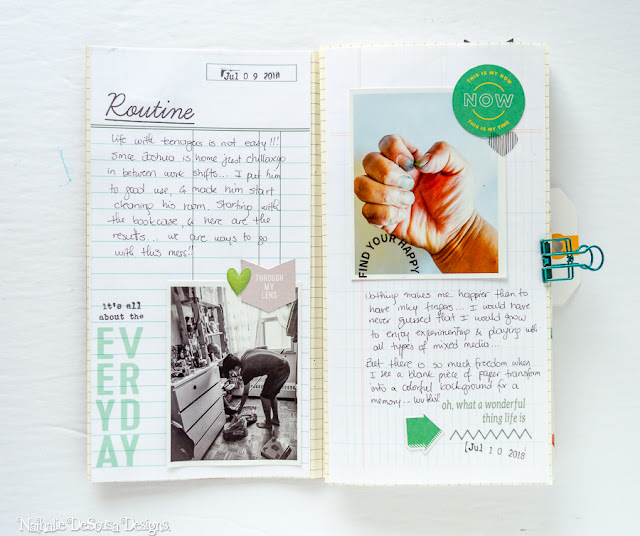 Jul 0 9 2018
Routine
Life with teenagers is not easy!!!
Since Joshua is home just chillaxin
in between work shifts... I put him
to good use, & made him start
cleaning his room. Starting with
the bookcase, & here are the
results... we are ways to go
with this mess!!
THROUGH
MY LENS
it's all
about the
EV
ER
YD
AY
THIS IS MY NOW
NOW
THIS IS MY TIME
FIND YOUR HAPPY
Nothing makes me happier than to
have inky fingers... I would have
never guessed that I would grow
to enjoy experimenting & playing with
all types of mixed media...
But there is so much freedom when
I see a blank piece of paper transform
into a colorful background for a
memory...
oh, what a wonderful
thing life is
Jul 1 0 2018
Nathalie DeSousa Designs.